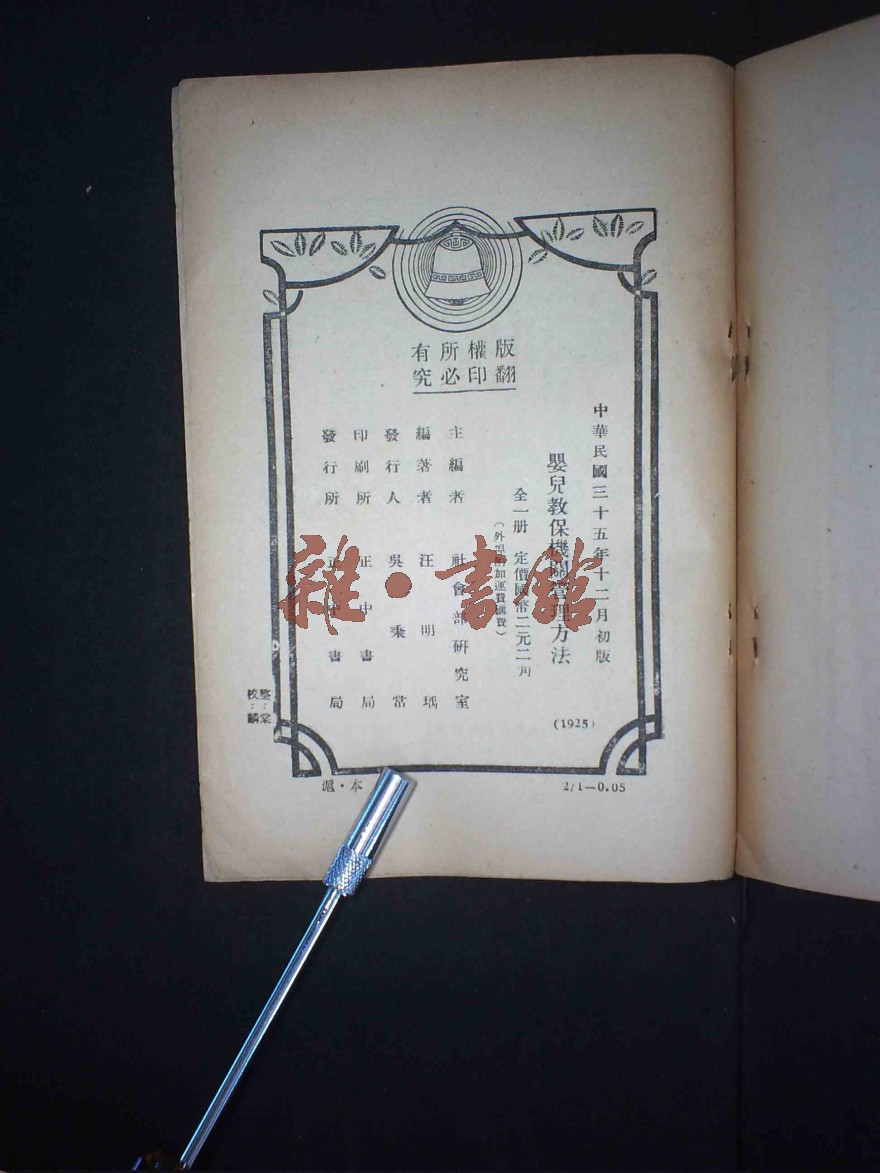 版權所有
翻印必究
中華民國三十五年十二月初版
嬰兒教保機關管理方法
全一册 定價國幣二元二角
(外埠酌加運費匯費)
主編者 社會部研究室
編著者 汪明瑀
發行人 吳秉常
印刷所 正中書局
發行所 正中書局
(1925)
校:麟
整:棠
滬・本
2/1—0.05
雜・書館